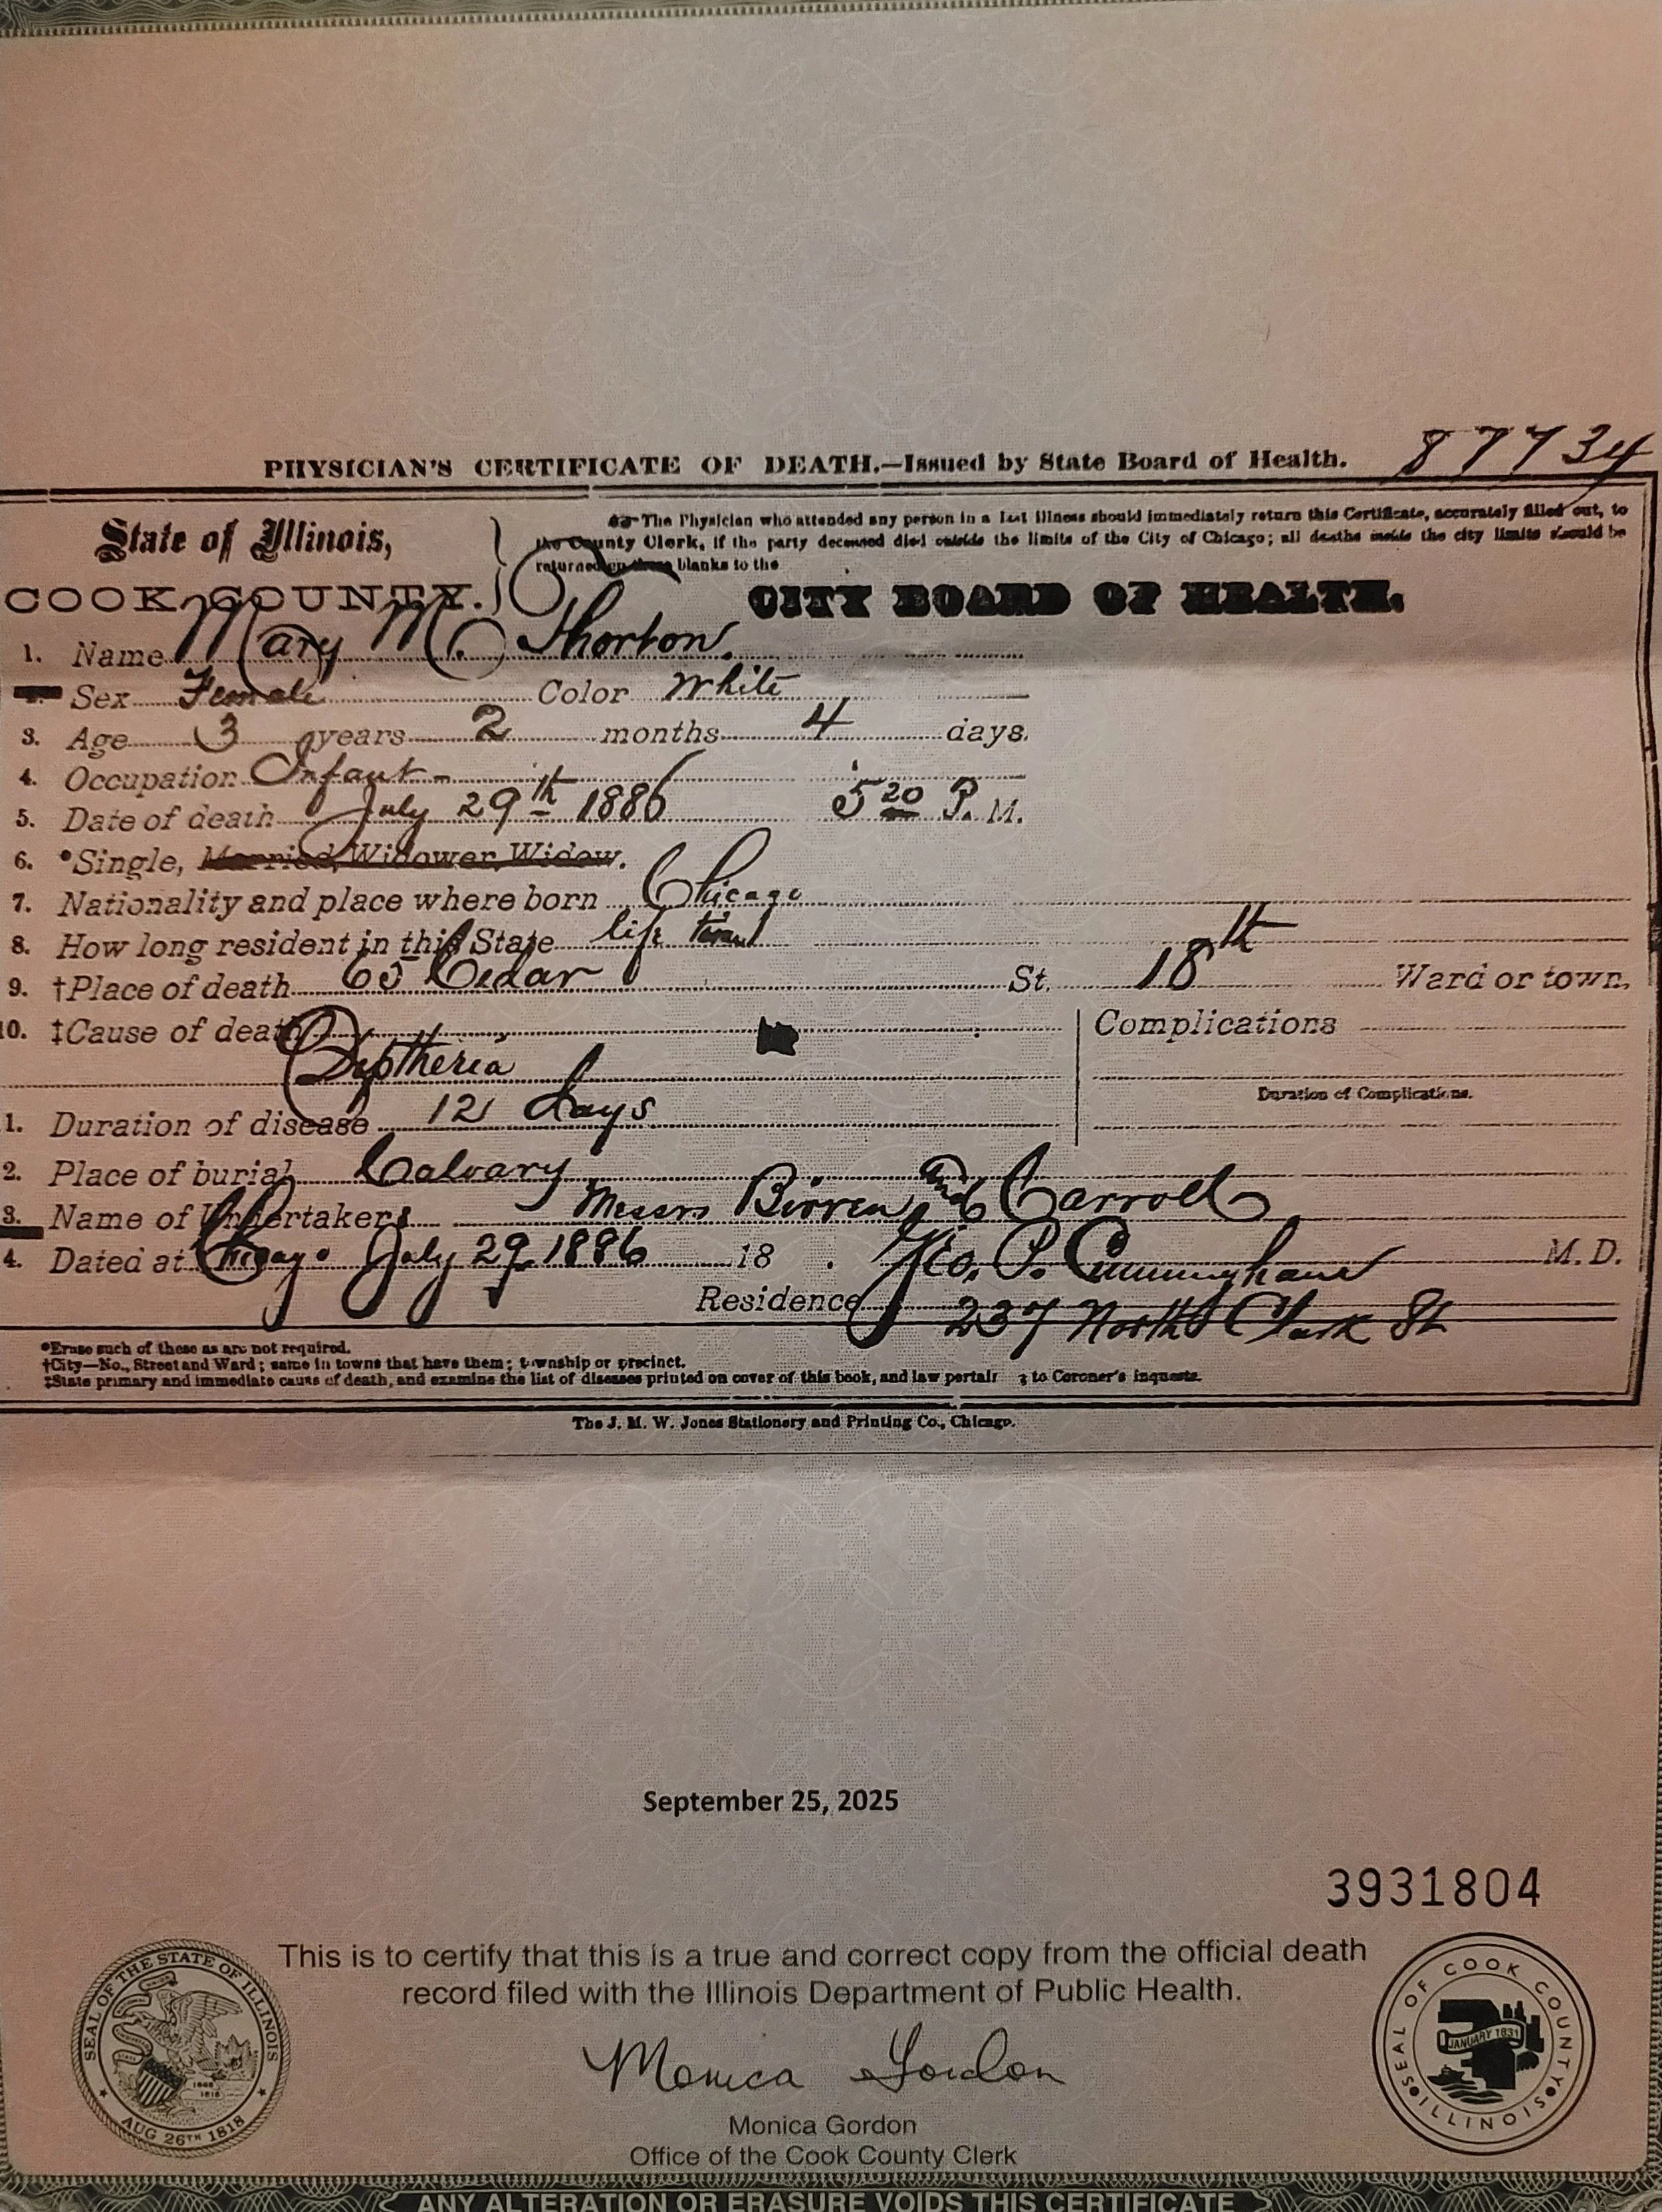 PHYSICIAN'S CERTIFICATE OF DEATH.—Issued by State Board of Health. 87734
State of Illinois,
COOK COUNTY.
The Physician who attended any person in a last illness should immediately return this Certificate, accurately filled out, to
the County Clerk, if the party deceased died outside the limits of the City of Chicago; all deaths inside the city limits should be
returned upon these blanks to the
CITY BOARD OF HEALTH.
1. Name Mary M. Thorton.
Sex Female Color White
3. Age 3 years 2 months 4 days.
4. Occupation Infant -
5. Date of death July 29th 1886 5 20 P. M.
6. *Single, Married, Widower, Widow.
7. Nationality and place where born Chicago
8. How long resident in this State life time
9. †Place of death 65 Cedar St. 18th Ward or town.
10. ‡Cause of death Complications
Diptheria
Duration of Complications.
1. Duration of disease 12 days
2. Place of burial Calvary
3. Name of Undertaker Messrs Birren and Carroll
4. Dated at Chicago July 29 1886 18 . Geo. P. Cunningham M.D.
Residence 237 North Clark St
*Erase such of these as are not required.
†City—No., Street and Ward; same in towns that have them; township or precinct.
‡State primary and immediate cause of death, and examine the list of diseases printed on cover of this book, and law to Coroner's inquests.
The J. M. W. Jones Stationery and Printing Co., Chicago.
September 25, 2025
3931804
This is to certify that this is a true and correct copy from the official death
record filed with the Illinois Department of Public Health.
SEAL OF THE STATE OF ILLINOIS
AUG 26TH 1818
1868
1818
SEAL OF COOK COUNTY
ILLINOIS
JANUARY 1831
Monica Gordon
Monica Gordon
Office of the Cook County Clerk
ANY ALTERATION OR ERASURE VOIDS THIS CERTIFICATE